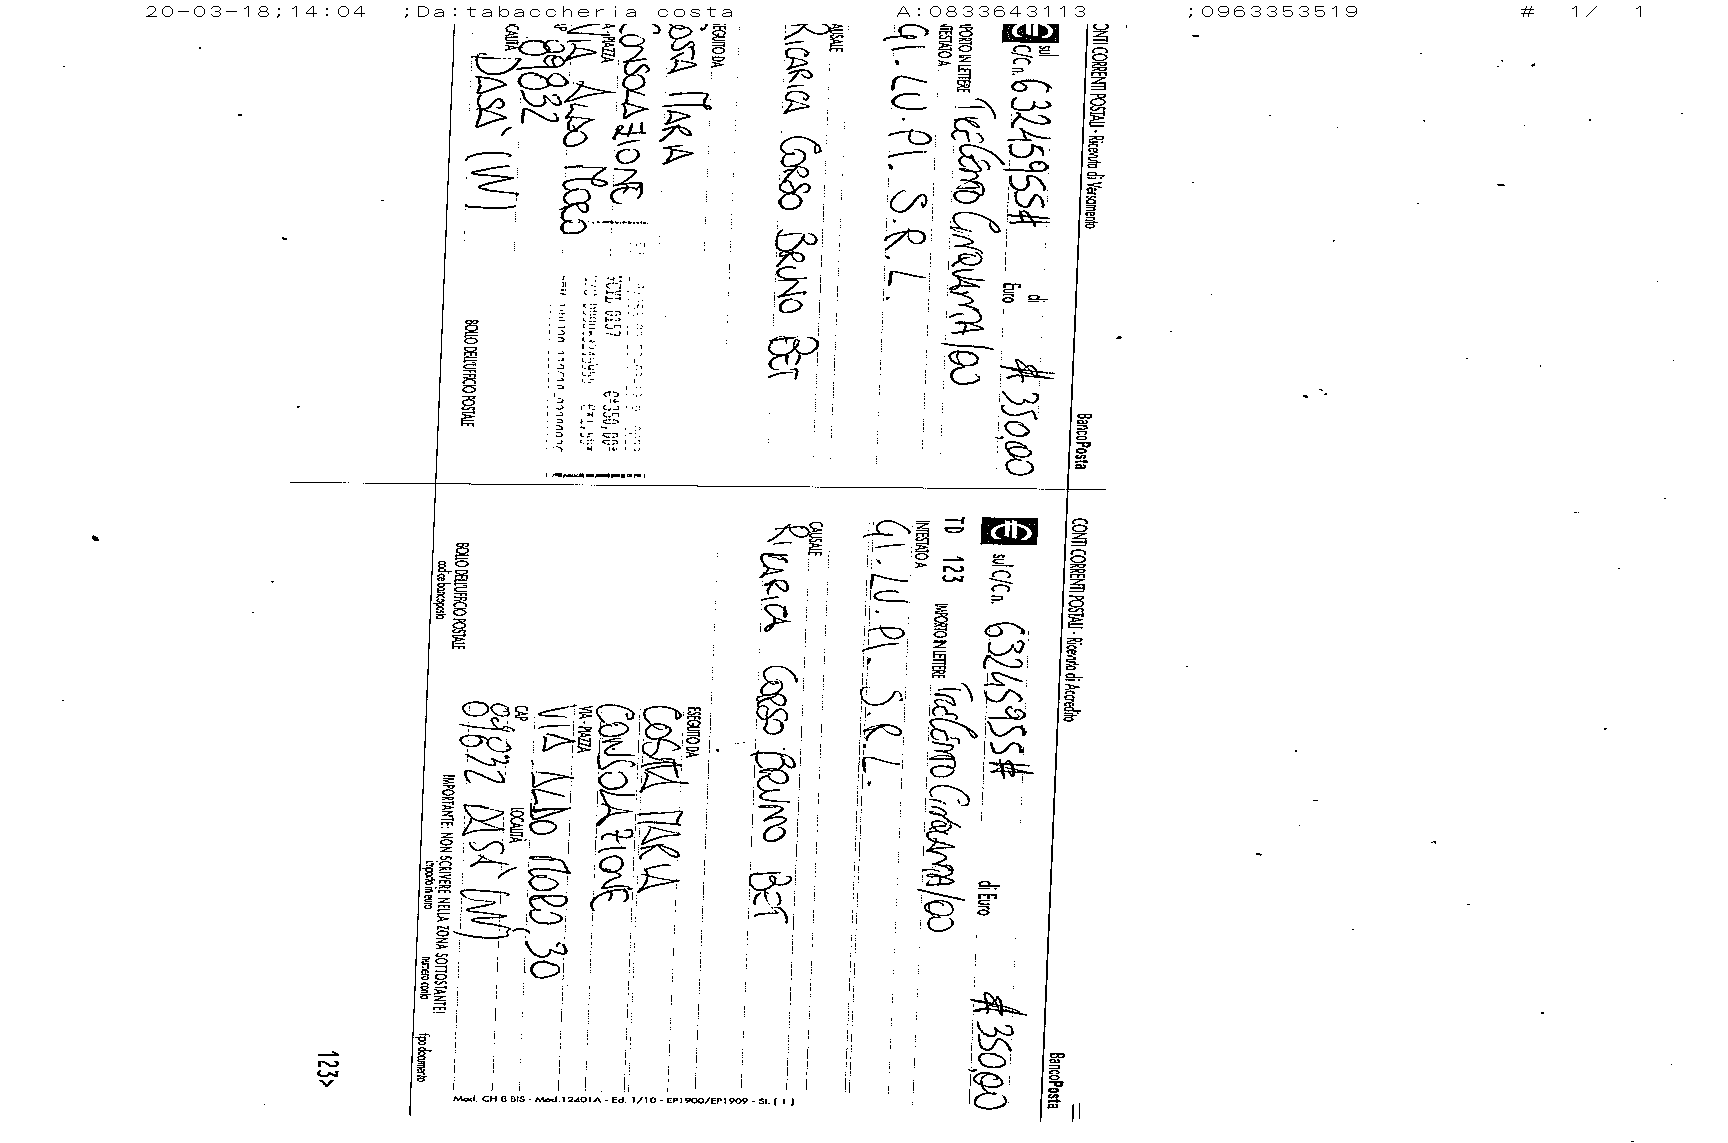 20-03-18;14:04 ;Da:tabaccheria costa A:0833643113 ;0963353519 # 1/ 1
CONTI CORRENTI POSTALI - Ricevuta di Versamento BancoPosta
sul C/C n. 63245955# di Euro # 350,00
IMPORTO IN LETTERE TRECENTO CINQUANTA/00
INTESTATO A
GI.LU.PI. S.R.L.
CAUSALE
RICARICA CORSO BRUNO BET
ESEGUITO DA
COSTA MARIA
CONSOLAZIONE
VIA - PIAZZA
VIA ALDO MORO
CAP
89832
LOCALITÀ
DASA' (VV)
VCYL 0157 €*350,00*
€*1,50*
BOLLO DELL'UFFICIO POSTALE
CONTI CORRENTI POSTALI - Ricevuta di Accredito BancoPosta
sul C/C n. 63245955# di Euro # 350,00
TD 123 IMPORTO IN LETTERE TRECENTO CINQUANTA/00
INTESTATO A
GI.LU.PI. S.R.L.
CAUSALE
RICARICA CORSO BRUNO BET
ESEGUITO DA
COSTA MARIA
CONSOLAZIONE
VIA - PIAZZA
VIA ALDO MORO, 30
CAP LOCALITÀ
89832 DASA' (VV)
BOLLO DELL'UFFICIO POSTALE
codice bancoposta
IMPORTANTE: NON SCRIVERE NELLA ZONA SOTTOSTANTE!
importo in euro numero conto tipo documento
123>
Mod. CH 8 BIS - Mod.12401A - Ed. 1/10 - EP1900/EP1909 - St. [ 1 ]